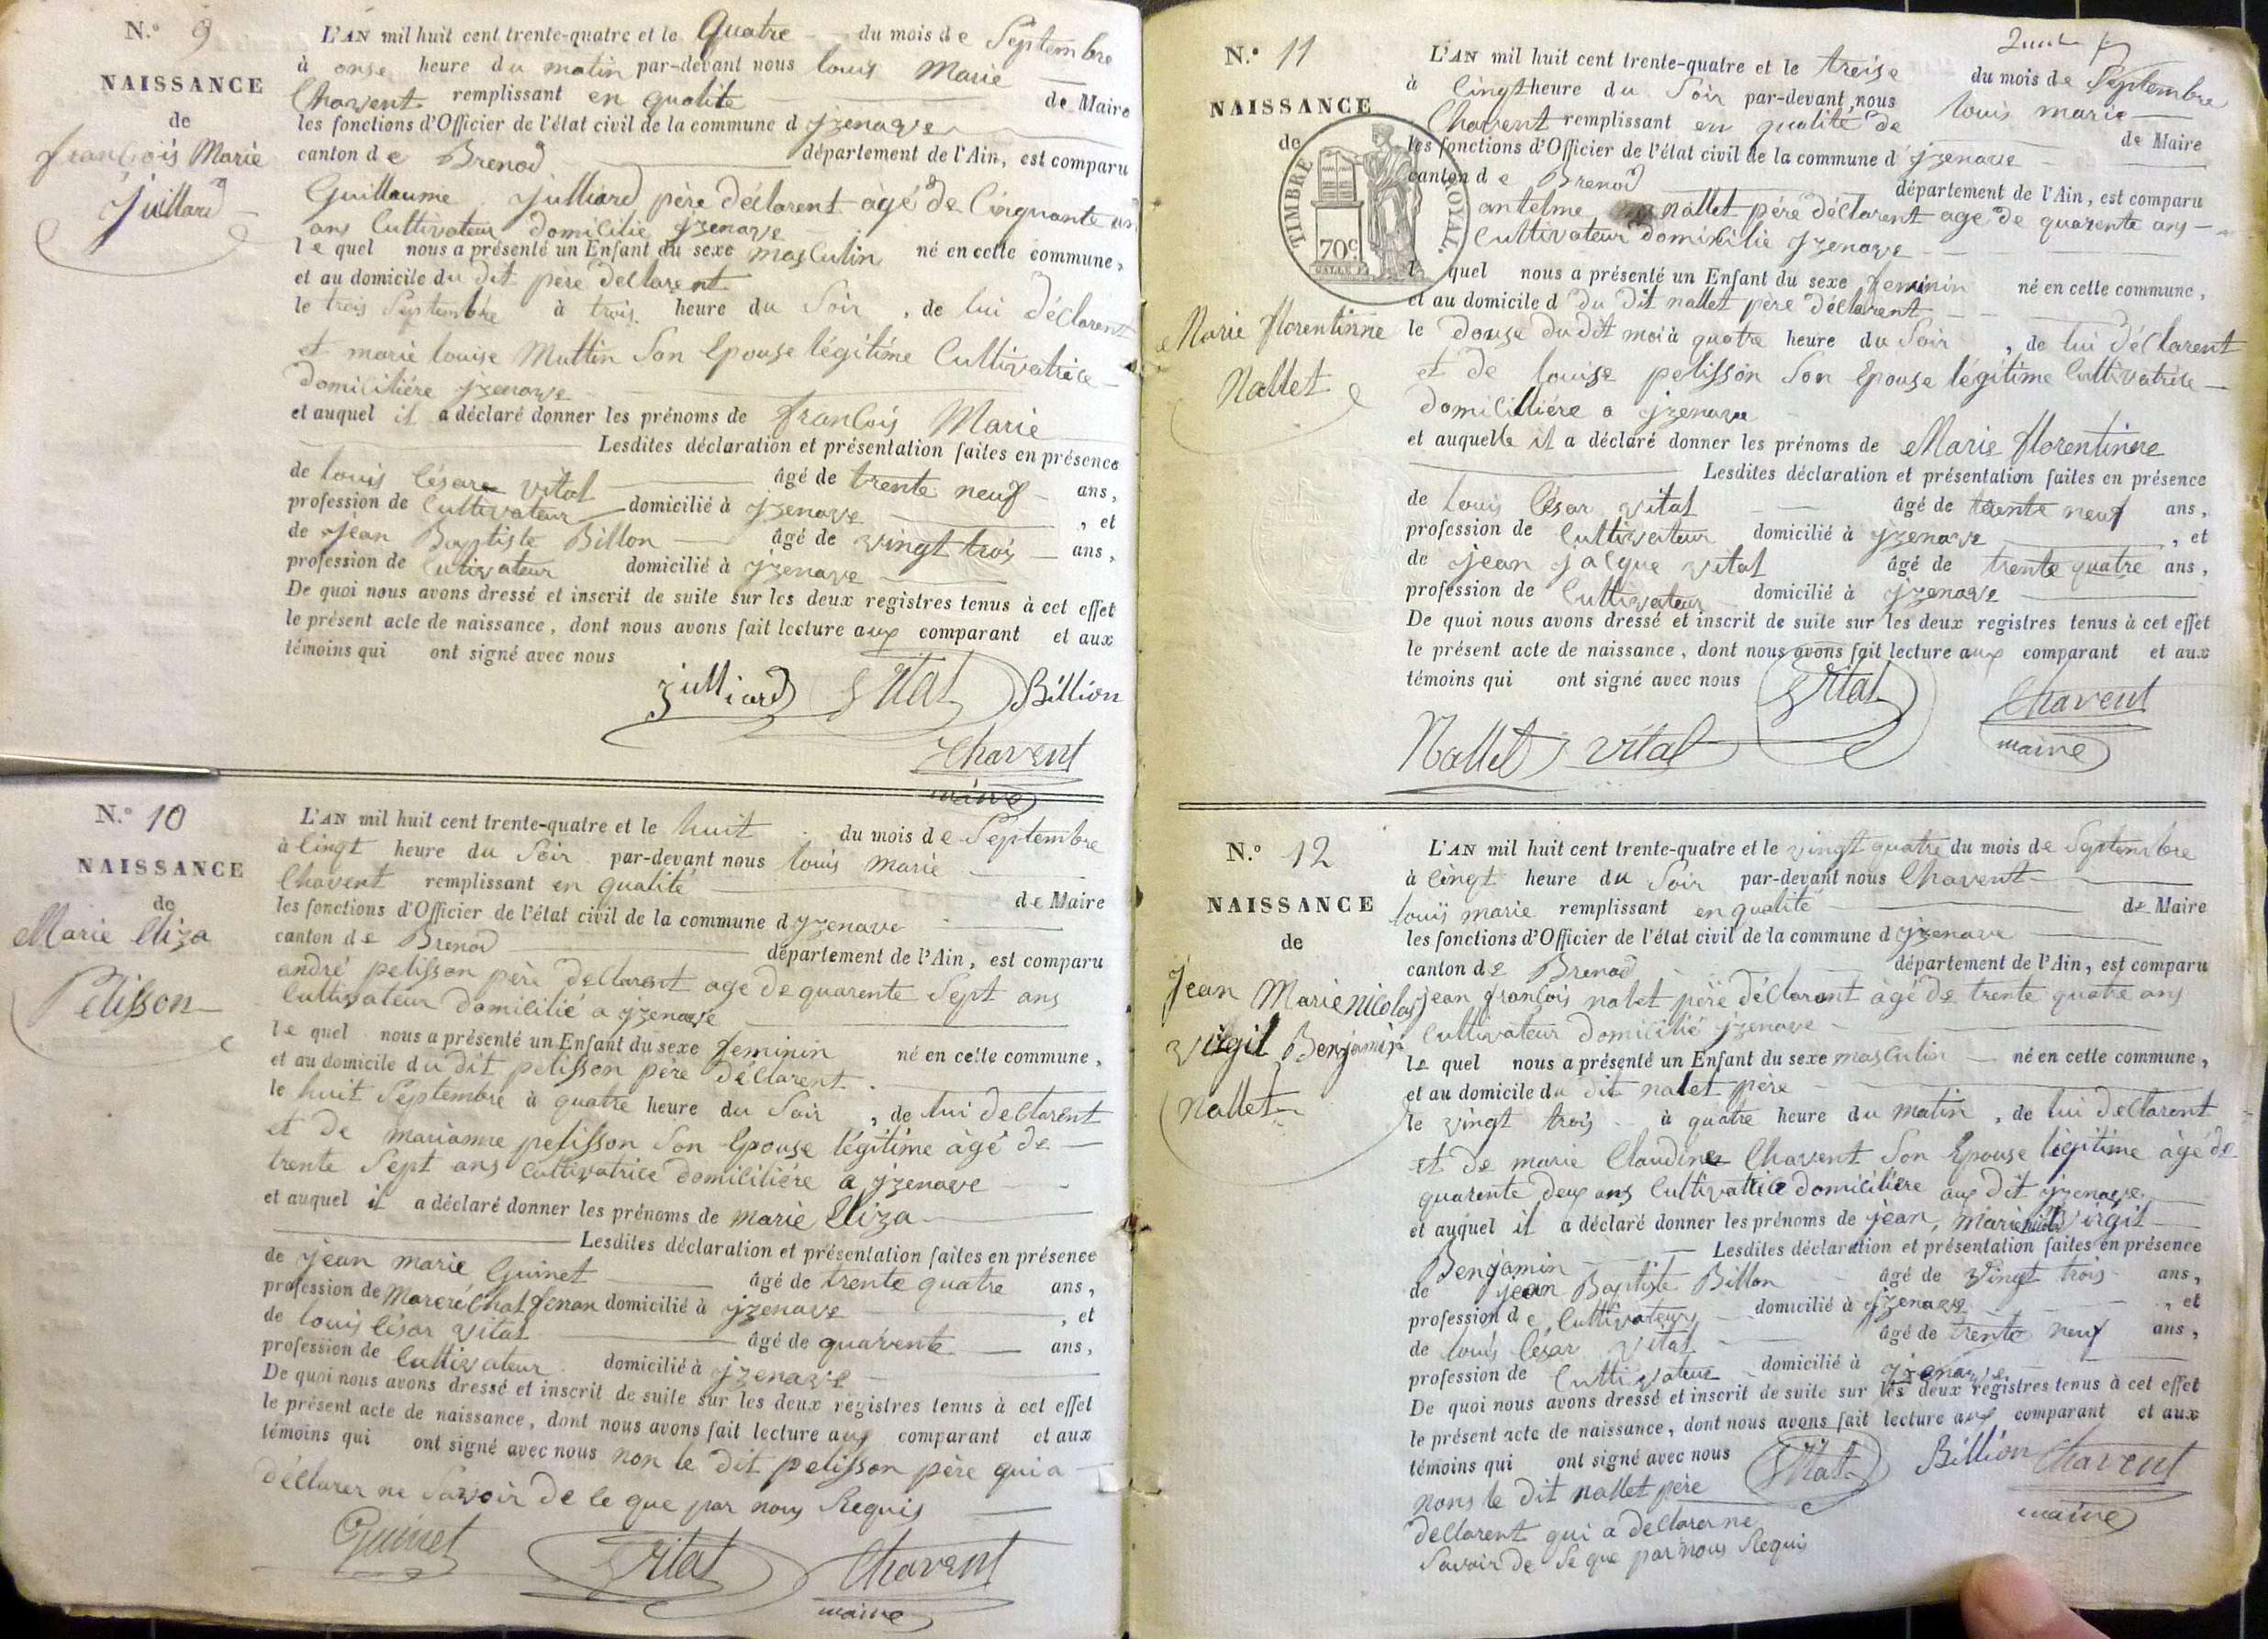 N.º 9
NAISSANCE
de
françois Marie
Juillard
L'AN mil huit cent trente-quatre et le Quatre du mois de Septembre
à onse heure du matin par-devant nous louis Marie
Chavent remplissant en qualité de Maire
les fonctions d'Officier de l'état civil de la commune d jzenave
canton de Brenod département de l'Ain, est comparu
Guillaume Julliard père déclarent âgé de Cinquante un
ans Cultivateur domicilié jzenave
le quel nous a présenté un Enfant du sexe masculin né en cette commune,
et au domicile du dit père déclarent
le trois Septembre à trois heure du Soir, de lui déclarent
et marie louise Muttin Son Epouse légitime Cultivatrice
domicilière jzenave
et auquel il a déclaré donner les prénoms de françois Marie
Lesdites déclaration et présentation faites en présence
de louis César vital âgé de trente neuf ans,
profession de Cultivateur domicilié à jzenave, et
de jean Baptiste Billon âgé de vingt trois ans,
profession de Cutivateur domicilié à jzenave
De quoi nous avons dressé et inscrit de suite sur les deux registres tenus à cet effet
le présent acte de naissance, dont nous avons fait lecture aux comparant et aux
témoins qui ont signé avec nous
julliard Vital Billion
Chavent
maire
N.º 10
NAISSANCE
de
Marie Eliza
Pelisson
L'AN mil huit cent trente-quatre et le huit du mois de Septembre
à Cingt heure du Soir par-devant nous louis marie
Chavent remplissant en qualité de Maire
les fonctions d'Officier de l'état civil de la commune d jzenave
canton de Brenod département de l'Ain, est comparu
andré pelisson père déclarent agé de quarente Sept ans
Cultivateur domicilié a jzenave
le quel nous a présenté un Enfant du sexe feminin né en cette commune,
et au domicile du dit pelisson père déclarent
le huit Septembre à quatre heure du Soir, de lui declarent
et de marianne pelisson Son Epouse légitime âgé de
trente Sept ans Cultivatrice domicilière a jzenave
et auquel il a déclaré donner les prénoms de marie Eliza
Lesdites déclaration et présentation faites en présence
de jean marie Guinet âgé de trente quatre ans,
profession de domicilié à jzenave, et
de louis César vital âgé de quarente ans,
profession de Cultivateur domicilié à jzenave
De quoi nous avons dressé et inscrit de suite sur les deux registres tenus à cet effet
le présent acte de naissance, dont nous avons fait lecture aux comparant et aux
témoins qui ont signé avec nous non le dit pelisson père qui a
déclarer ne Savoir de Ce que par nous Requis
Guinet Vital Chavent
maire
N.º 11
NAISSANCE
de
TIMBRE ROYAL.
70c
Marie florentinne
Nallet
L'AN mil huit cent trente-quatre et le treise du mois de Septembre
à Cingt heure du Soir par-devant nous louis marie
Chavent remplissant en qualité de de Maire
les fonctions d'Officier de l'état civil de la commune d jzenave
canton de Brenod département de l'Ain, est comparu
antelme nallet père déclarent agé de quarente ans
Cultivateur domicilié jzenave
l quel nous a présenté un Enfant du sexe feminin né en cette commune,
et au domicile d du dit nallet père déclarent
le douse du dit moi à quatre heure du Soir, de lui déclarent
et de louise pelisson Son Epouse légitime Cultivatrice
domicillière a jzenave
et auquelle il a déclaré donner les prénoms de Marie florentinne
Lesdites déclaration et présentation faites en présence
de louis César vital âgé de trente neuf ans,
profession de Cultivateur domicilié à jzenave, et
de jean jacque vital âgé de trente quatre ans,
profession de Cultivateur domicilié à jzenave
De quoi nous avons dressé et inscrit de suite sur les deux registres tenus à cet effet
le présent acte de naissance, dont nous avons fait lecture aux comparant et aux
témoins qui ont signé avec nous Vital Chavent
Nallet vital maire
N.º 12
NAISSANCE
de
Jean Marie nicolas
virgil Benjamin
nallet
L'AN mil huit cent trente-quatre et le vingt quatre du mois de Septembre
à Cingt heure du Soir par-devant nous Chavent
louis marie remplissant en qualité de Maire
les fonctions d'Officier de l'état civil de la commune d jzenave
canton de Brenod département de l'Ain, est comparu
jean françois nalet père déclarant âgé de trente quatre ans
Cultivateur domicilié jzenave
le quel nous a présenté un Enfant du sexe masculin né en cette commune,
et au domicile du dit nalet père
le vingt trois à quatre heure du matin, de lui declarent
et de marie Claudine Chavent Son Epouse légitime âgé de
quarente deux ans Cultivatrice domicilière aux dit jzenave
et auquel il a déclaré donner les prénoms de jean, marie nicolas virgil
Lesdites déclaration et présentation faites en présence
Benjamin
de jean Baptiste Billon âgé de Vingt trois ans,
profession de Cultivateur domicilié à jzenave, et
de louis César vital âgé de trente neuf ans,
profession de Cultivateur domicilié à jzenave
De quoi nous avons dressé et inscrit de suite sur les deux registres tenus à cet effet
le présent acte de naissance, dont nous avons fait lecture aux comparant et aux
témoins qui ont signé avec nous Vital Billion Chavent
nons le dit nallet père maire
declarent qui a declarer ne
Savoir de Se que par nous Requis